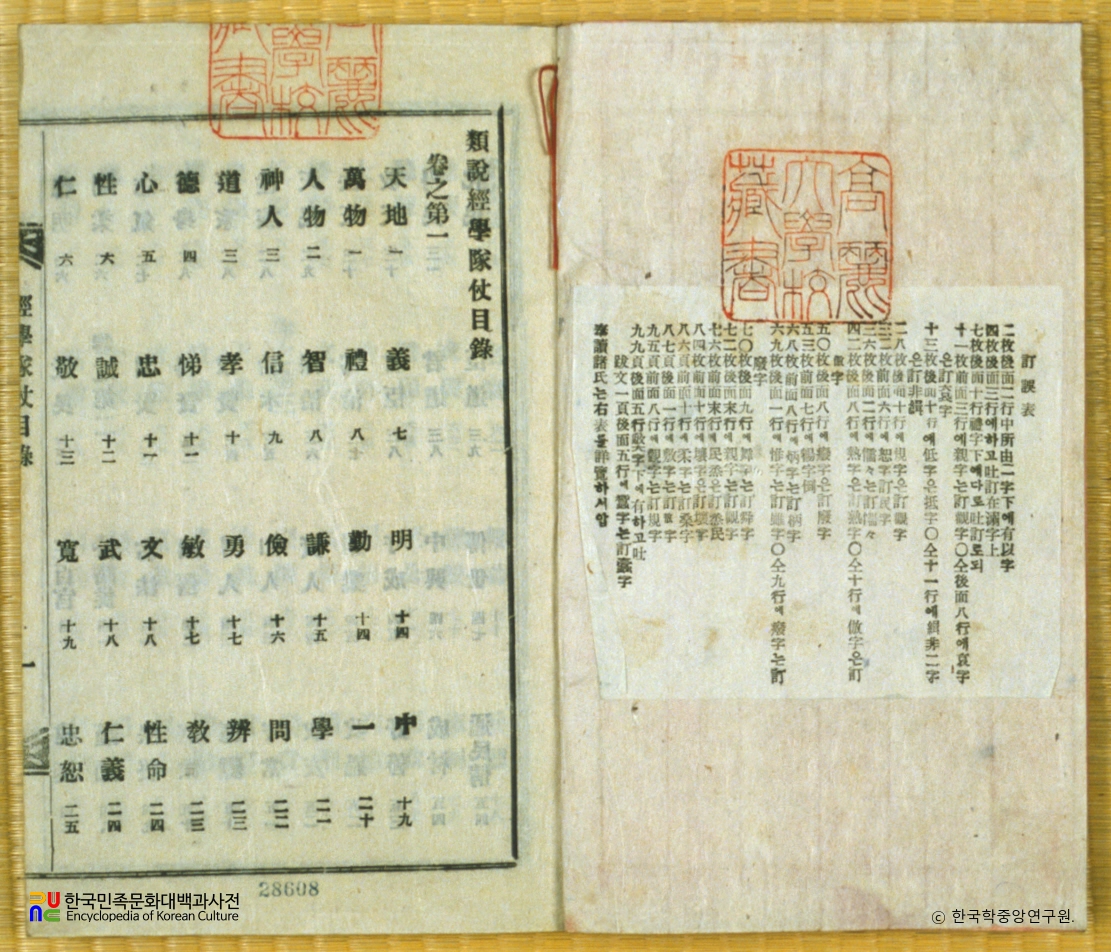 高麗
大學校
藏書
訂誤表
二枚後面二行中所由二字下에有以字
四枚後面三行에하고吐訂在滿字上
七枚後面十行禮字下에다로吐訂로되
十一枚前面三行에親字는訂觀字〇仝後面八行에哀字
은訂字
十三枚後面十行에低字은抵字〇仝十一行에緝非二字
은訂非
二八枚後面十行에現字은訂觀字
三二枚前面六行에恕字訂民字
三六枚後面二行에儒々는訂懦々
四二枚後面八行에熟字은訂熱字〇仝十行에傲字은訂
倣字
五〇枚後面八行에癈字은訂廢字
五三枚前面七行에楊字倒
六八枚前面八行에炳字는訂柄字
六九枚後面一行에惟字는訂雖字〇仝九行에癈字는訂
廢字
七〇枚後面九行에舞字는訂舜字
七二枚後面末行에親字는訂觀字
七六枚前面末行에民悉은訂悉民
八四枚前面十行에壤字은訂壞字
八六頁前面十行에柔字는訂桑字
八七頁後面一行에敷字는訂字
九五頁前面八行에觀字는訂規字
九九頁後面五行字下에有하고吐
跋文一頁後面五行에字는訂字
奉讀諸氏는右表를詳覽하서압
類說經學隊仗目錄
卷之第一
天地 一
萬物 一
人物 二
神人 三
道 三
德 四
心 五
性 六
仁 六
義 七
禮 七
智 八
信 九
孝 十
悌 十一
忠 十一
誠 十二
敬 十三
明 十四
勤 十四
謙 十五
儉 十六
勇 十七
敏 十七
文 十八
武 十八
寬 十九
中 十九
一 二十
學 二一
問 二二
辨 二三
敎 二三
性命 二四
仁義 二四
忠恕 二五
經學隊仗目錄
一
28608
한국민족문화대백과사전
Encyclopedia of Korean Culture
© 한국학중앙연구원.